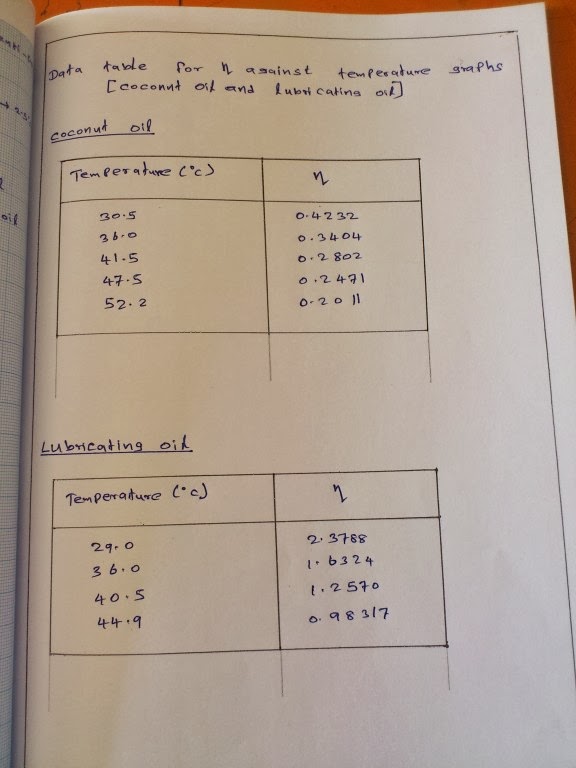 Data table for η against temperature graphs
[coconut oil and lubricating oil]
coconut oil
Temperature (°c) η
30.5 0.4232
36.0 0.3404
41.5 0.2802
47.5 0.2471
52.2 0.2011
Lubricating oil
Temperature (°c) η
29.0 2.3788
36.0 1.6324
40.5 1.2570
44.9 0.98317
oil